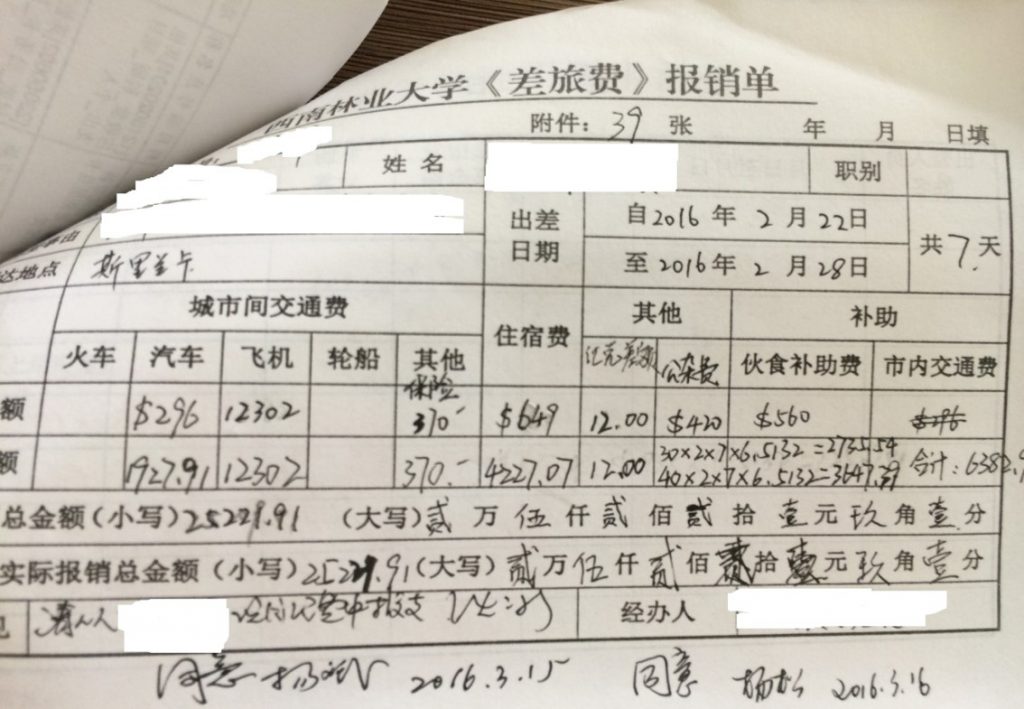 西南林业大学《差旅费》报销单
附件：39 张 年 月 日填
姓名 职别
出差日期 自2016年2月22日 共7天
至2016年2月28日
达地点 斯里兰卡
城市间交通费 住宿费 其他 补助
火车 汽车 飞机 轮船 其他保险 公杂费 伙食补助费 市内交通费
额 $296 12302 370- $649 12.00 $420 $560 $296
额 1927.91 12302 370.- 4227.07 12.00 30×2×7×6.5132=2735.54 合计：6382.9
40×2×7×6.5132=3647.39
总金额(小写)25221.91 (大写)贰万伍仟贰佰贰拾壹元玖角壹分
实际报销总金额(小写)25221.91(大写)贰万伍仟贰佰贰拾壹元玖角壹分
经办人
同意 2016.3.15 同意 杨松 2016.3.16